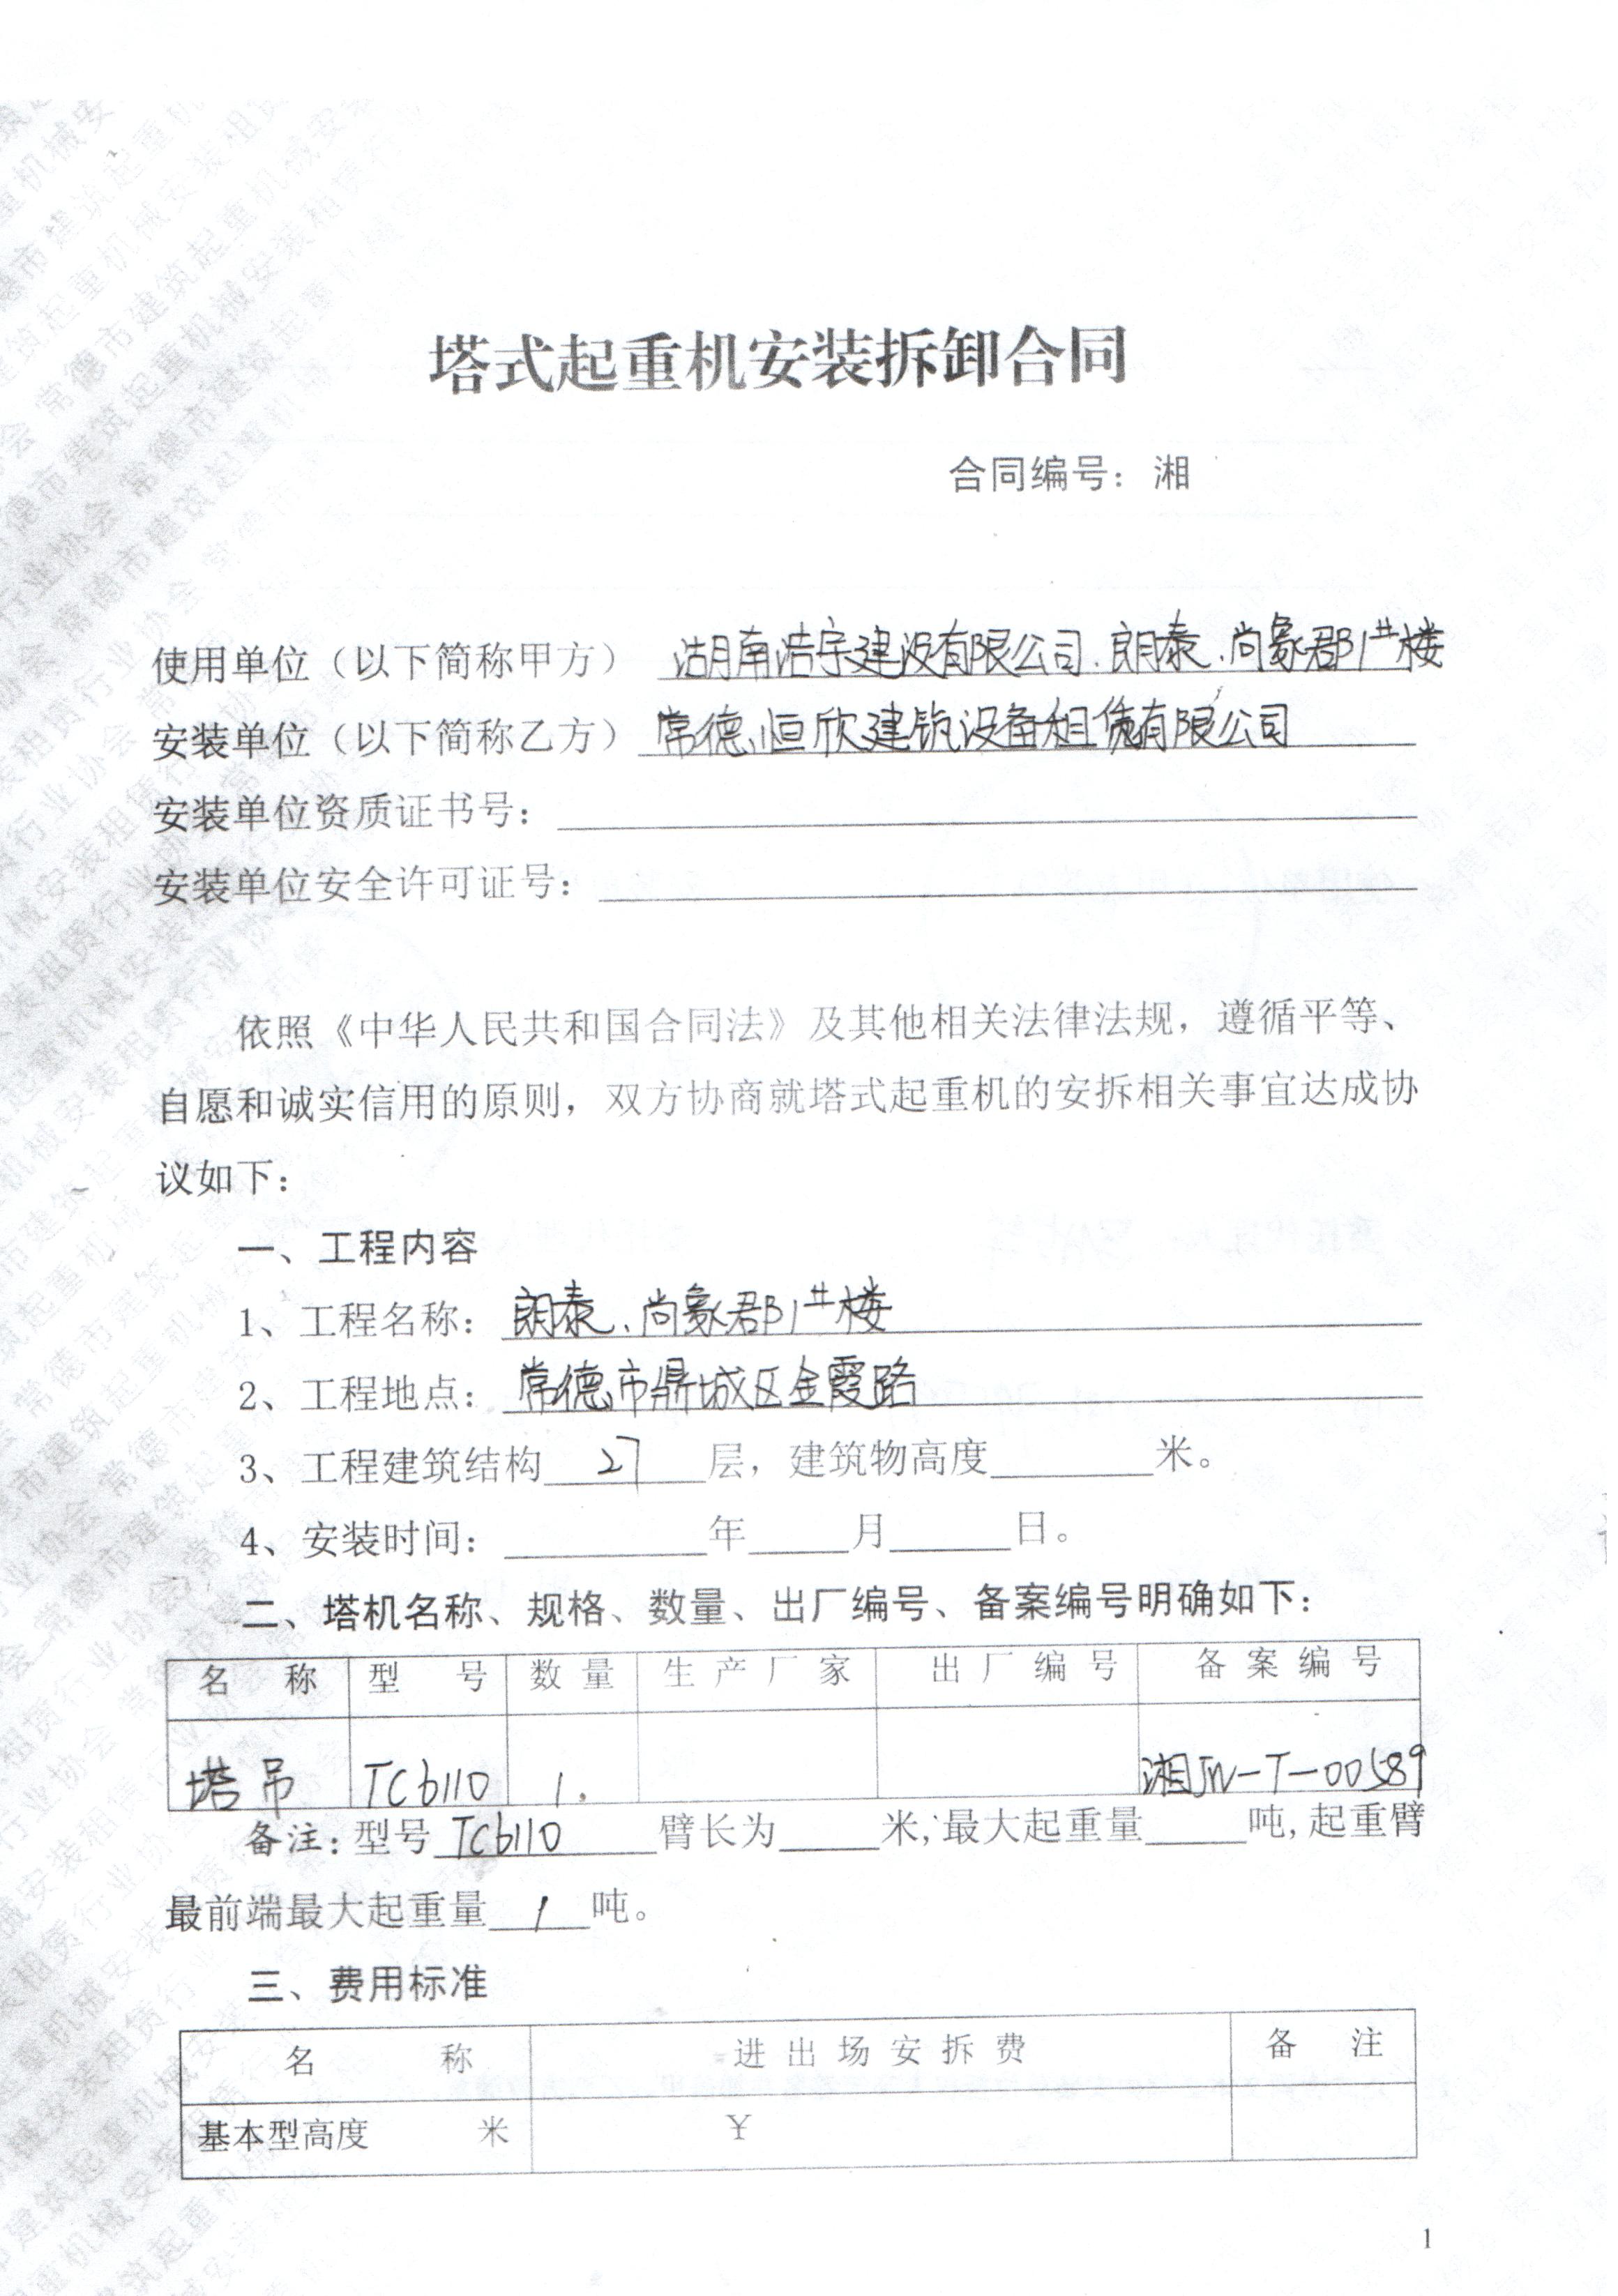 塔式起重机安装拆卸合同
合同编号：湘
使用单位（以下简称甲方） 湖南浩宇建设有限公司.朗泰.尚象郡1#楼
安装单位（以下简称乙方） 常德恒欣建筑设备租赁有限公司
安装单位资质证书号：
安装单位安全许可证号：
依照《中华人民共和国合同法》及其他相关法律法规，遵循平等、
自愿和诚实信用的原则，双方协商就塔式起重机的安拆相关事宜达成协
议如下：
一、工程内容
1、工程名称：朗泰.尚象郡1#楼
2、工程地点：常德市鼎城区金霞路
3、工程建筑结构 27 层，建筑物高度 米。
4、安装时间： 年 月 日。
二、塔机名称、规格、数量、出厂编号、备案编号明确如下：
名 称 型 号 数量 生产厂家 出厂编号 备案编号
塔吊 TC6110 1. 湘JW-T-00589
备注：型号 TC6110 臂长为 米，最大起重量 吨，起重臂
最前端最大起重量 1 吨。
三、费用标准
名 称 进出场安拆费 备 注
基本型高度 米 ¥
1